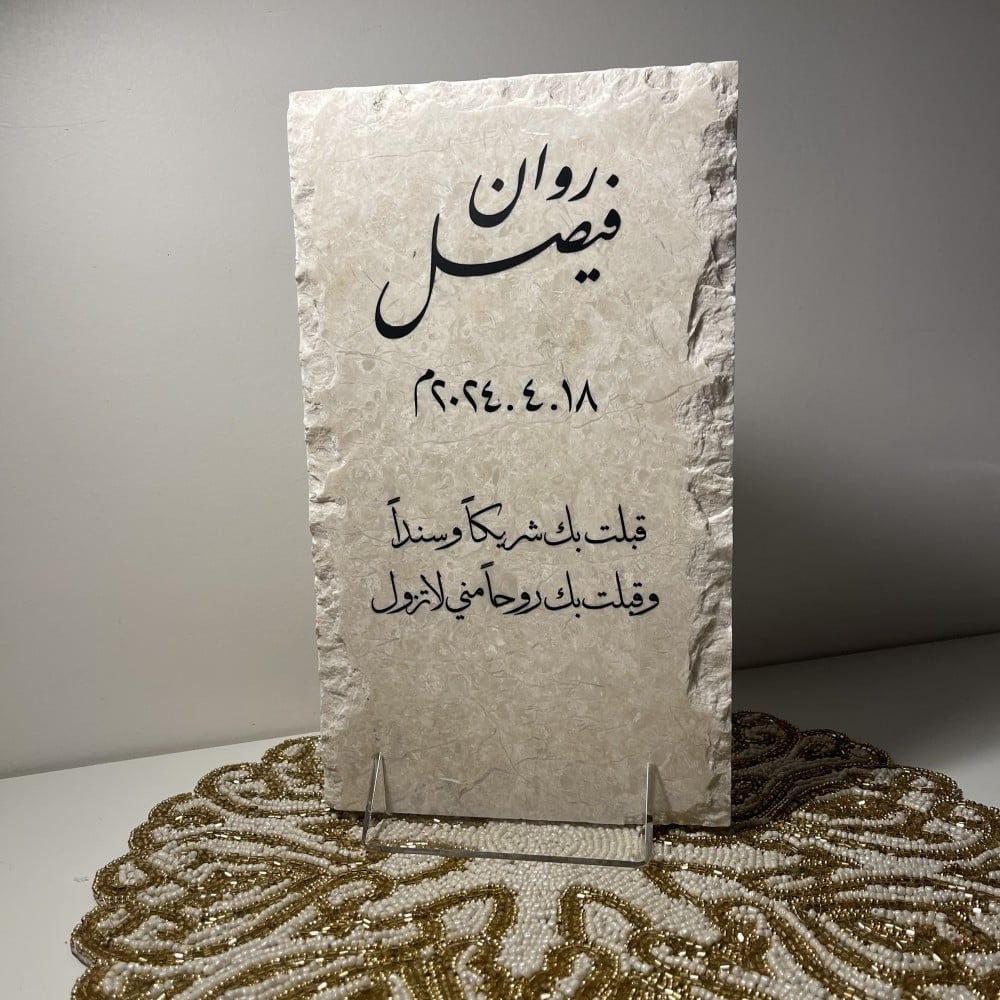 روان
فيصل
١٨.٤.٢٠٢٤م
قبلت بك شريكاً وسنداً
وقبلت بك روحاً مني لا تزول